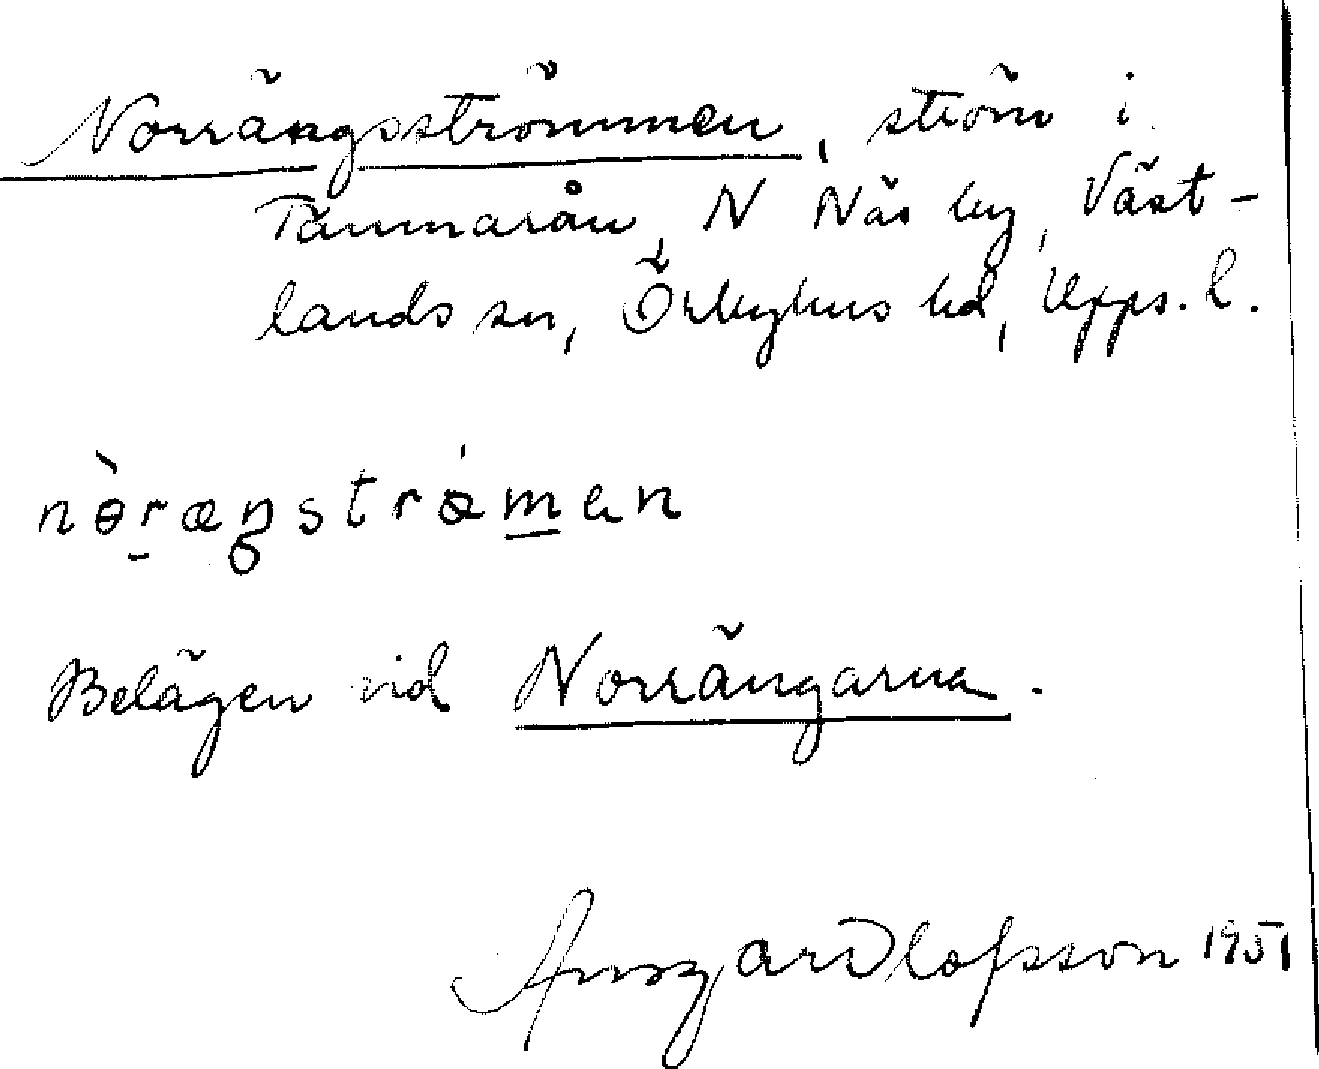 Norrängsströmmen, ström i
Tämnarån, N Näs by, Väst-
lands sn, Örbyhus hd, Upps. l.
Belägen vid Norrängarna.
Ansgar Olofsson 1951